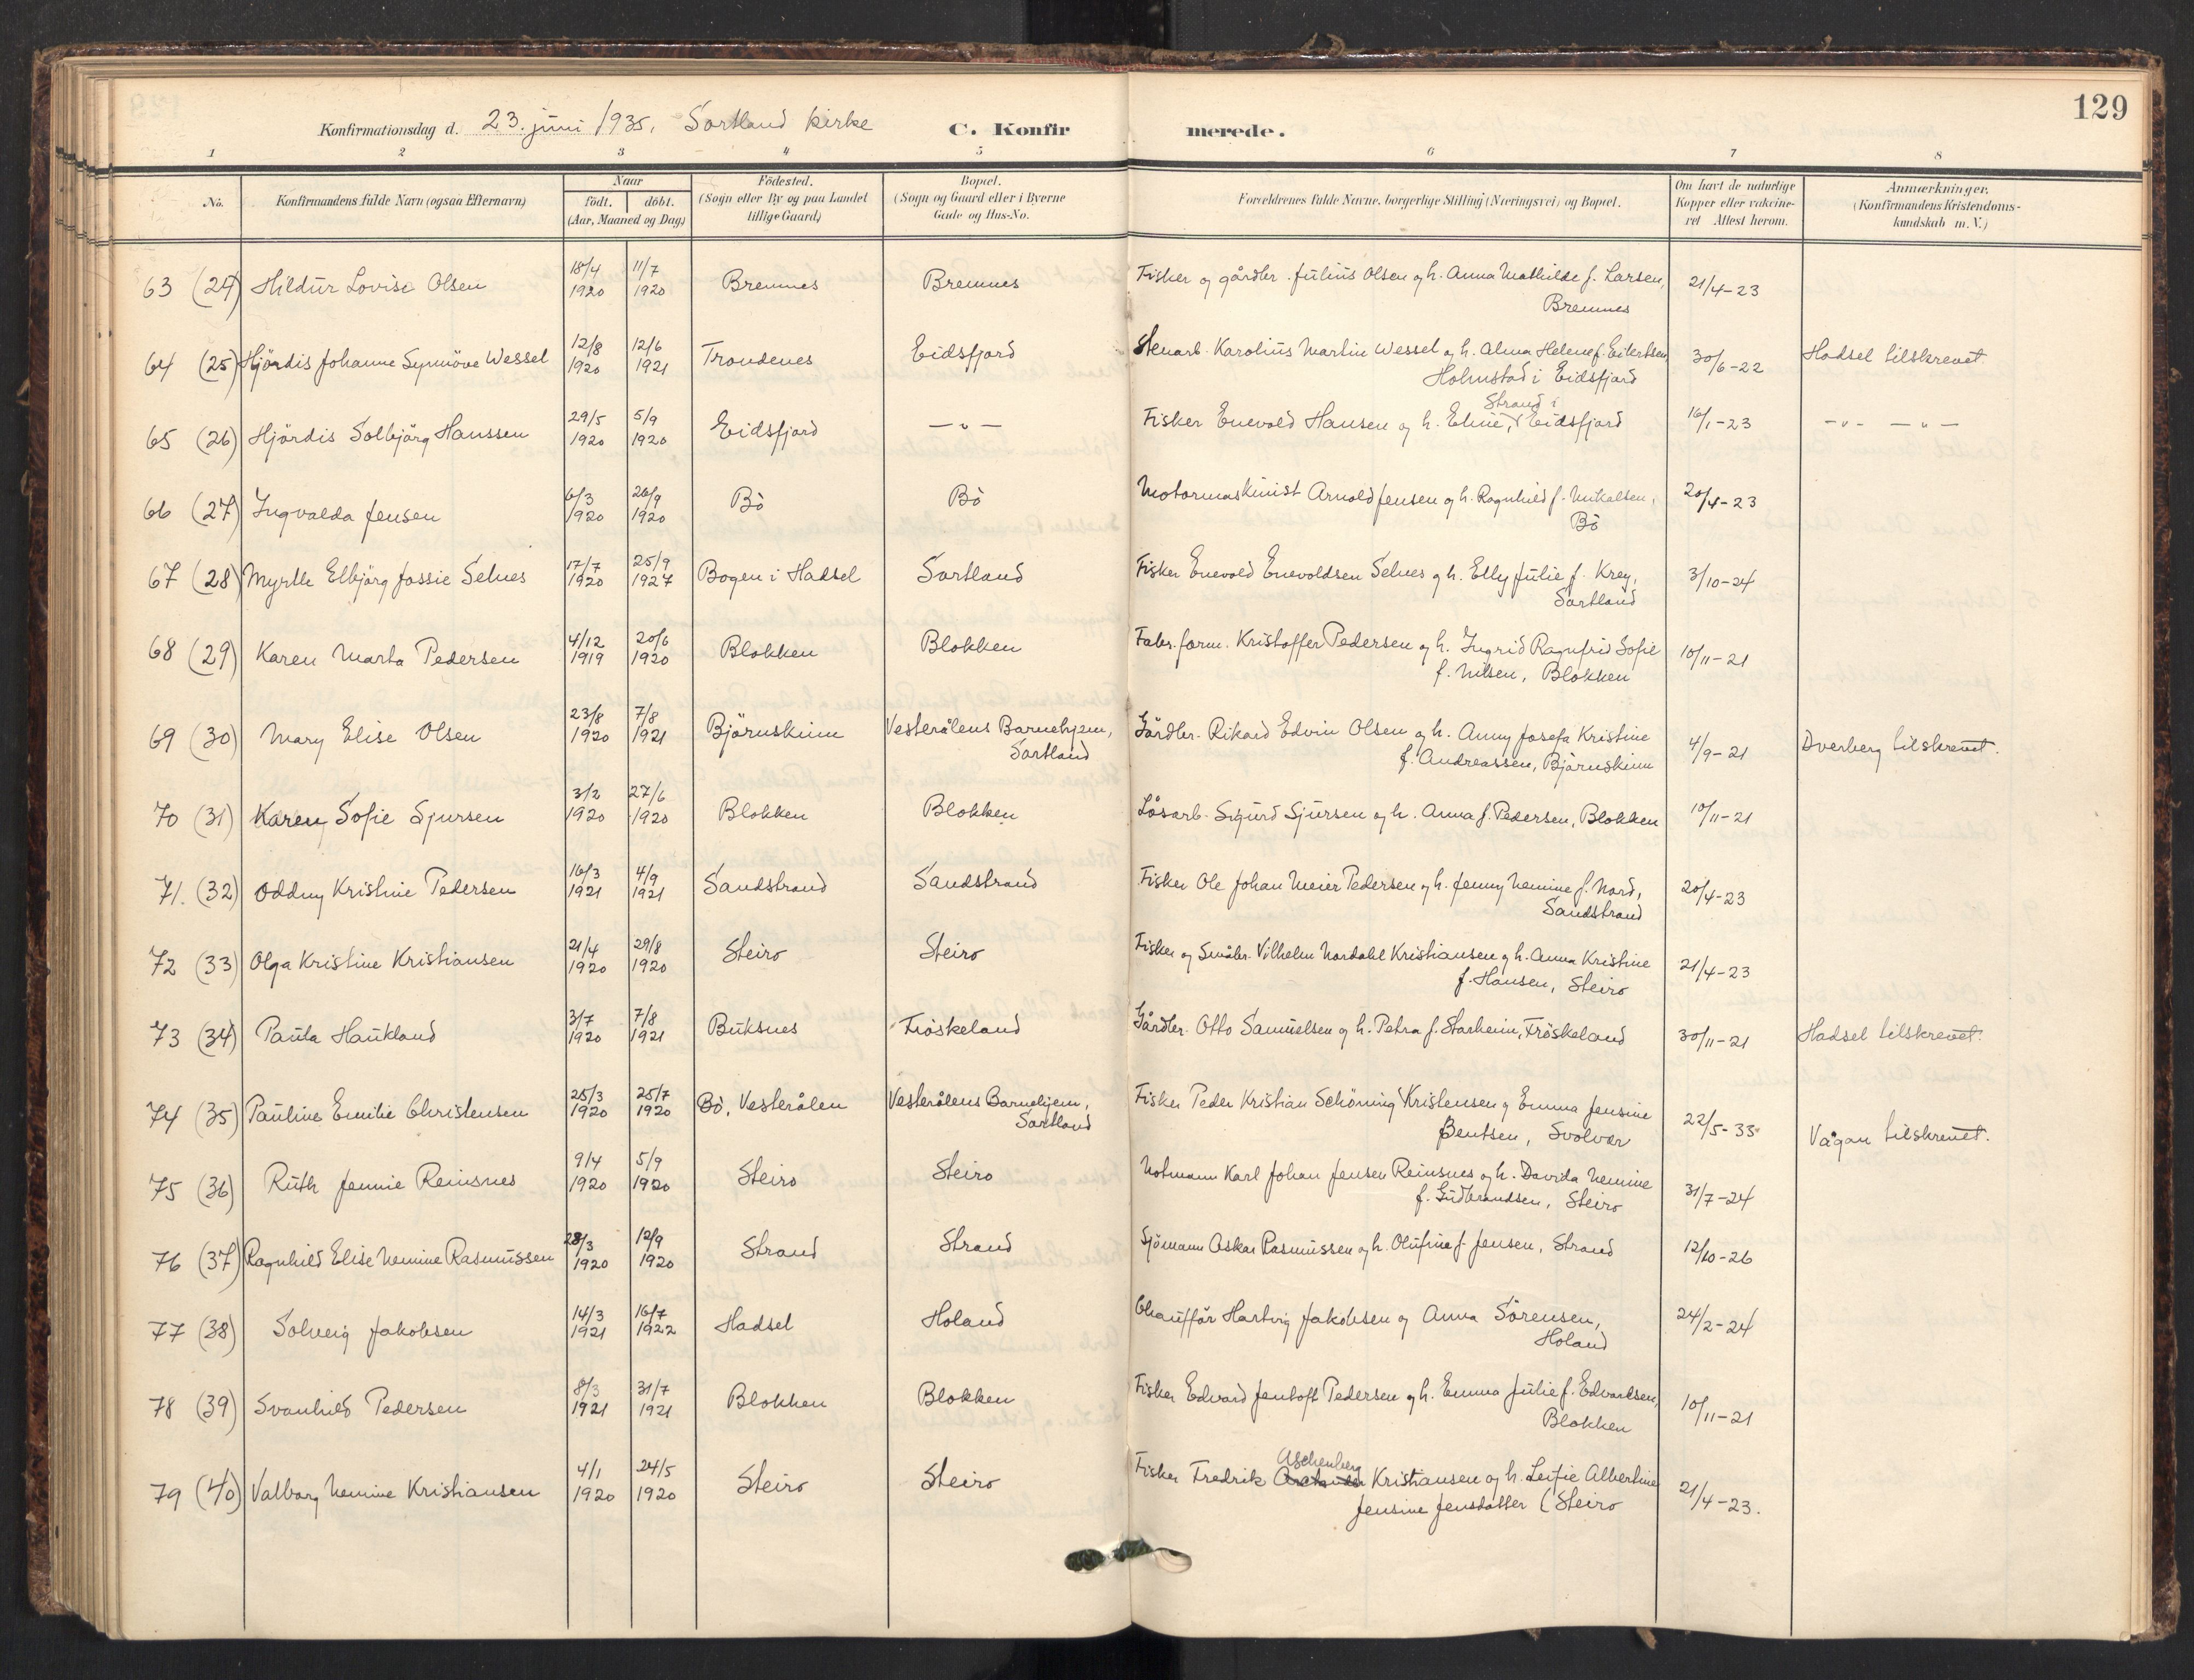 129
Konfirmationsdag d. 23. juni 1935, Sortland kirke C. Konfirmerede.
1 2 3 4 5 6 7 8
No. Konfirmandens fulde Navn (ogsaa Efternavn) Naar født. døbt. (Aar, Maaned og Dag) Fødested. (Sogn eller By og paa Landet tillige Gaard) Bopæl. (Sogn og Gaard eller i Byerne Gade og Hus-No. Forældrenes fulde Navne, borgerlige Stilling (Næringsvei) og Bopæl. Om havt de naturlige Kopper eller vakcineret Attest herom. Anmærkninger. (Konfirmandens Kristendomskundskab m. V.)
63 (24) Hildur Lovise Olsen 18/4 1920 11/7 1920 Bremnes Bremnes Fisker og gårdbr. Julius Olsen og h. Anna Mathilde f. Larsen, 21/4-23
Bremnes
64 (25) Hjördis Johanne Synnöve Wessel 12/8 1920 12/6 1921 Trondenes Eidsfjord Stenarb. Karolius Martin Wessel og h. Alma Helene f. Eilertsen, 30/6-22 Hadsel tilskrevet.
Holmstad i Eidsfjord
65 (26) Hjördis Solbjörg Hanssen 29/5 1920 5/9 1920 Eidsfjord — " — Fisker Enevold Hansen og h. Eline, Strand i Eidsfjord 16/1-23 - " - — " —
66 (27) Ingvalda Jensen 6/3 1920 26/9 1920 Bö Bö Motormaskinist Arnold Jensen og h. Ragnhild f. Mikalsen, 20/4-23
Bö
67 (28) Myrtle Elbjörg Jossie Selnes 17/7 1920 25/9 1927 Bogen i Hadsel Sortland Fisker Enevold Enevoldsen Selnes og h. Elly Julie f. Krey, 3/10-24
Sortland
68 (29) Karen Marta Pedersen 4/12 1919 20/6 1920 Blokken Blokken Fabr. form. Kristoffer Pedersen og h. Ingrid Ragnfrid Sofie 10/11-21
f. Nilsen, Blokken
69 (30) Mary Elise Olsen 23/8 1920 7/8 1921 Björnskinn Vesterålens Barnehjem, Sortland Gårdbr. Rikard Edvin Olsen og h. Anny Josefa Kristine 4/9-21 Dverberg tilskrevet.
f. Andreassen, Björnskinn
70 (31) Karen Sofie Sjursen 3/2 1920 27/6 1920 Blokken Blokken Lösarb. Sigurd Sjursen og h. Anna f. Pedersen, Blokken 10/11-21
71. (32) Oddny Kristine Pedersen 16/3 1921 4/9 1921 Sandstrand Sandstrand Fisker Ole Johan Meier Pedersen og h. Jenny Nemine f. Nord, 20/4-23
Sandstrand
72 (33) Olga Kristine Kristiansen 21/4 1920 29/8 1920 Steiro Steiro Fisker og Småbr. Vilhelm Nordahl Kristiansen og h. Anna Kristine 21/4-23
f. Hansen, Steiro
73 (34) Paula Haukland 3/7 1920 7/8 1921 Buksnes Fröskeland Gårdbr. Otto Samuelsen og h. Petra f. Starheim, Fröskeland 30/11-21 Hadsel tilskrevet.
74 (35) Pauline Emilie Christensen 25/3 1920 25/7 1920 Bö, Vesterålen Vesterålens Barnehjem, Sortland Fisker Peder Kristian Schöning Kristensen og Emma Jensine 22/5-33 Vågan tilskrevet.
Bentsen, Svolvær
75 (36) Ruth Jennie Reinsnes 9/4 1920 5/9 1920 Steiro Steiro Notmann Karl Johan Jensen Reinsnes og h. Davida Nemine 31/7-24
f. Gudbrandsen, Steiro
76 (37) Ragnhild Elise Nemine Rasmussen 28/3 1920 12/9 1920 Strand Strand Sjömann Oskar Rasmussen og h. Olufine f. Jensen, Strand 12/10-26
77 (38) Solveig Jakobsen 14/3 1921 16/7 1922 Hadsel Holand Chauffør Hartvig Jakobsen og Anna Sörensen, 24/2-24
Holand
78 (39) Svanhild Pedersen 8/3 1921 31/7 1921 Blokken Blokken Fisker Edvard Jentoft Pedersen og h. Emma Julie f. Edvardsen, 10/11-21
Blokken
79 (40) Valborg Nemine Kristiansen 4/1 1920 24/5 1920 Steiro Steiro Fisker Fredrik Aschenberg Kristiansen og h. Leifie Albertine 21/4-23.
Jensine Jensdatter (Steiro